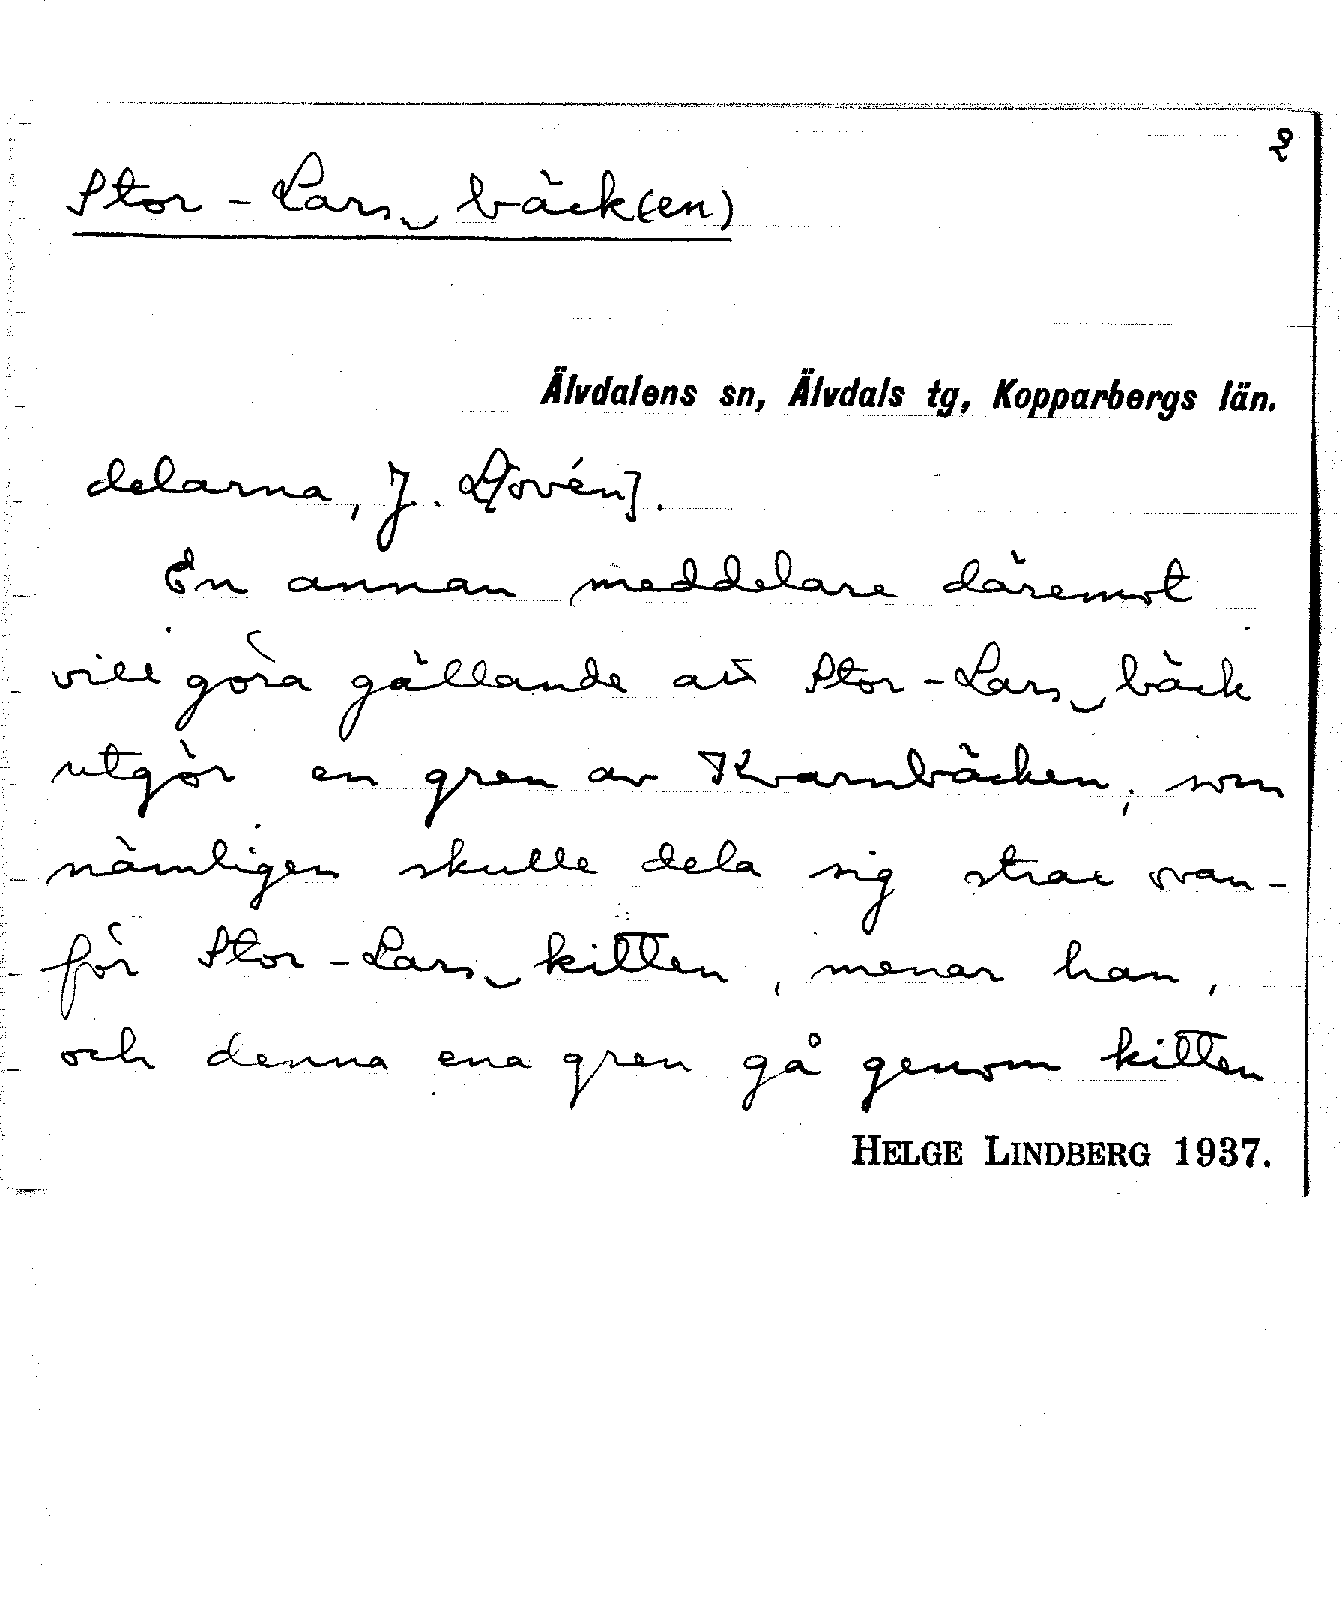 2
Stor-Lars‿bäck(en)
Älvdalens sn, Älvdals tg, Kopparbergs län.
delarna, J. Ljovén].
En annan meddelare däremot
vill göra gällande att Stor-Lars‿bäck
utgör en gren av Kvarnbäcken, som
nämligen skulle dela sig strax ovan-
för Stor-Lars‿kitten, menar han,
och denna ena gren gå genom kitten
HELGE LINDBERG 1937.